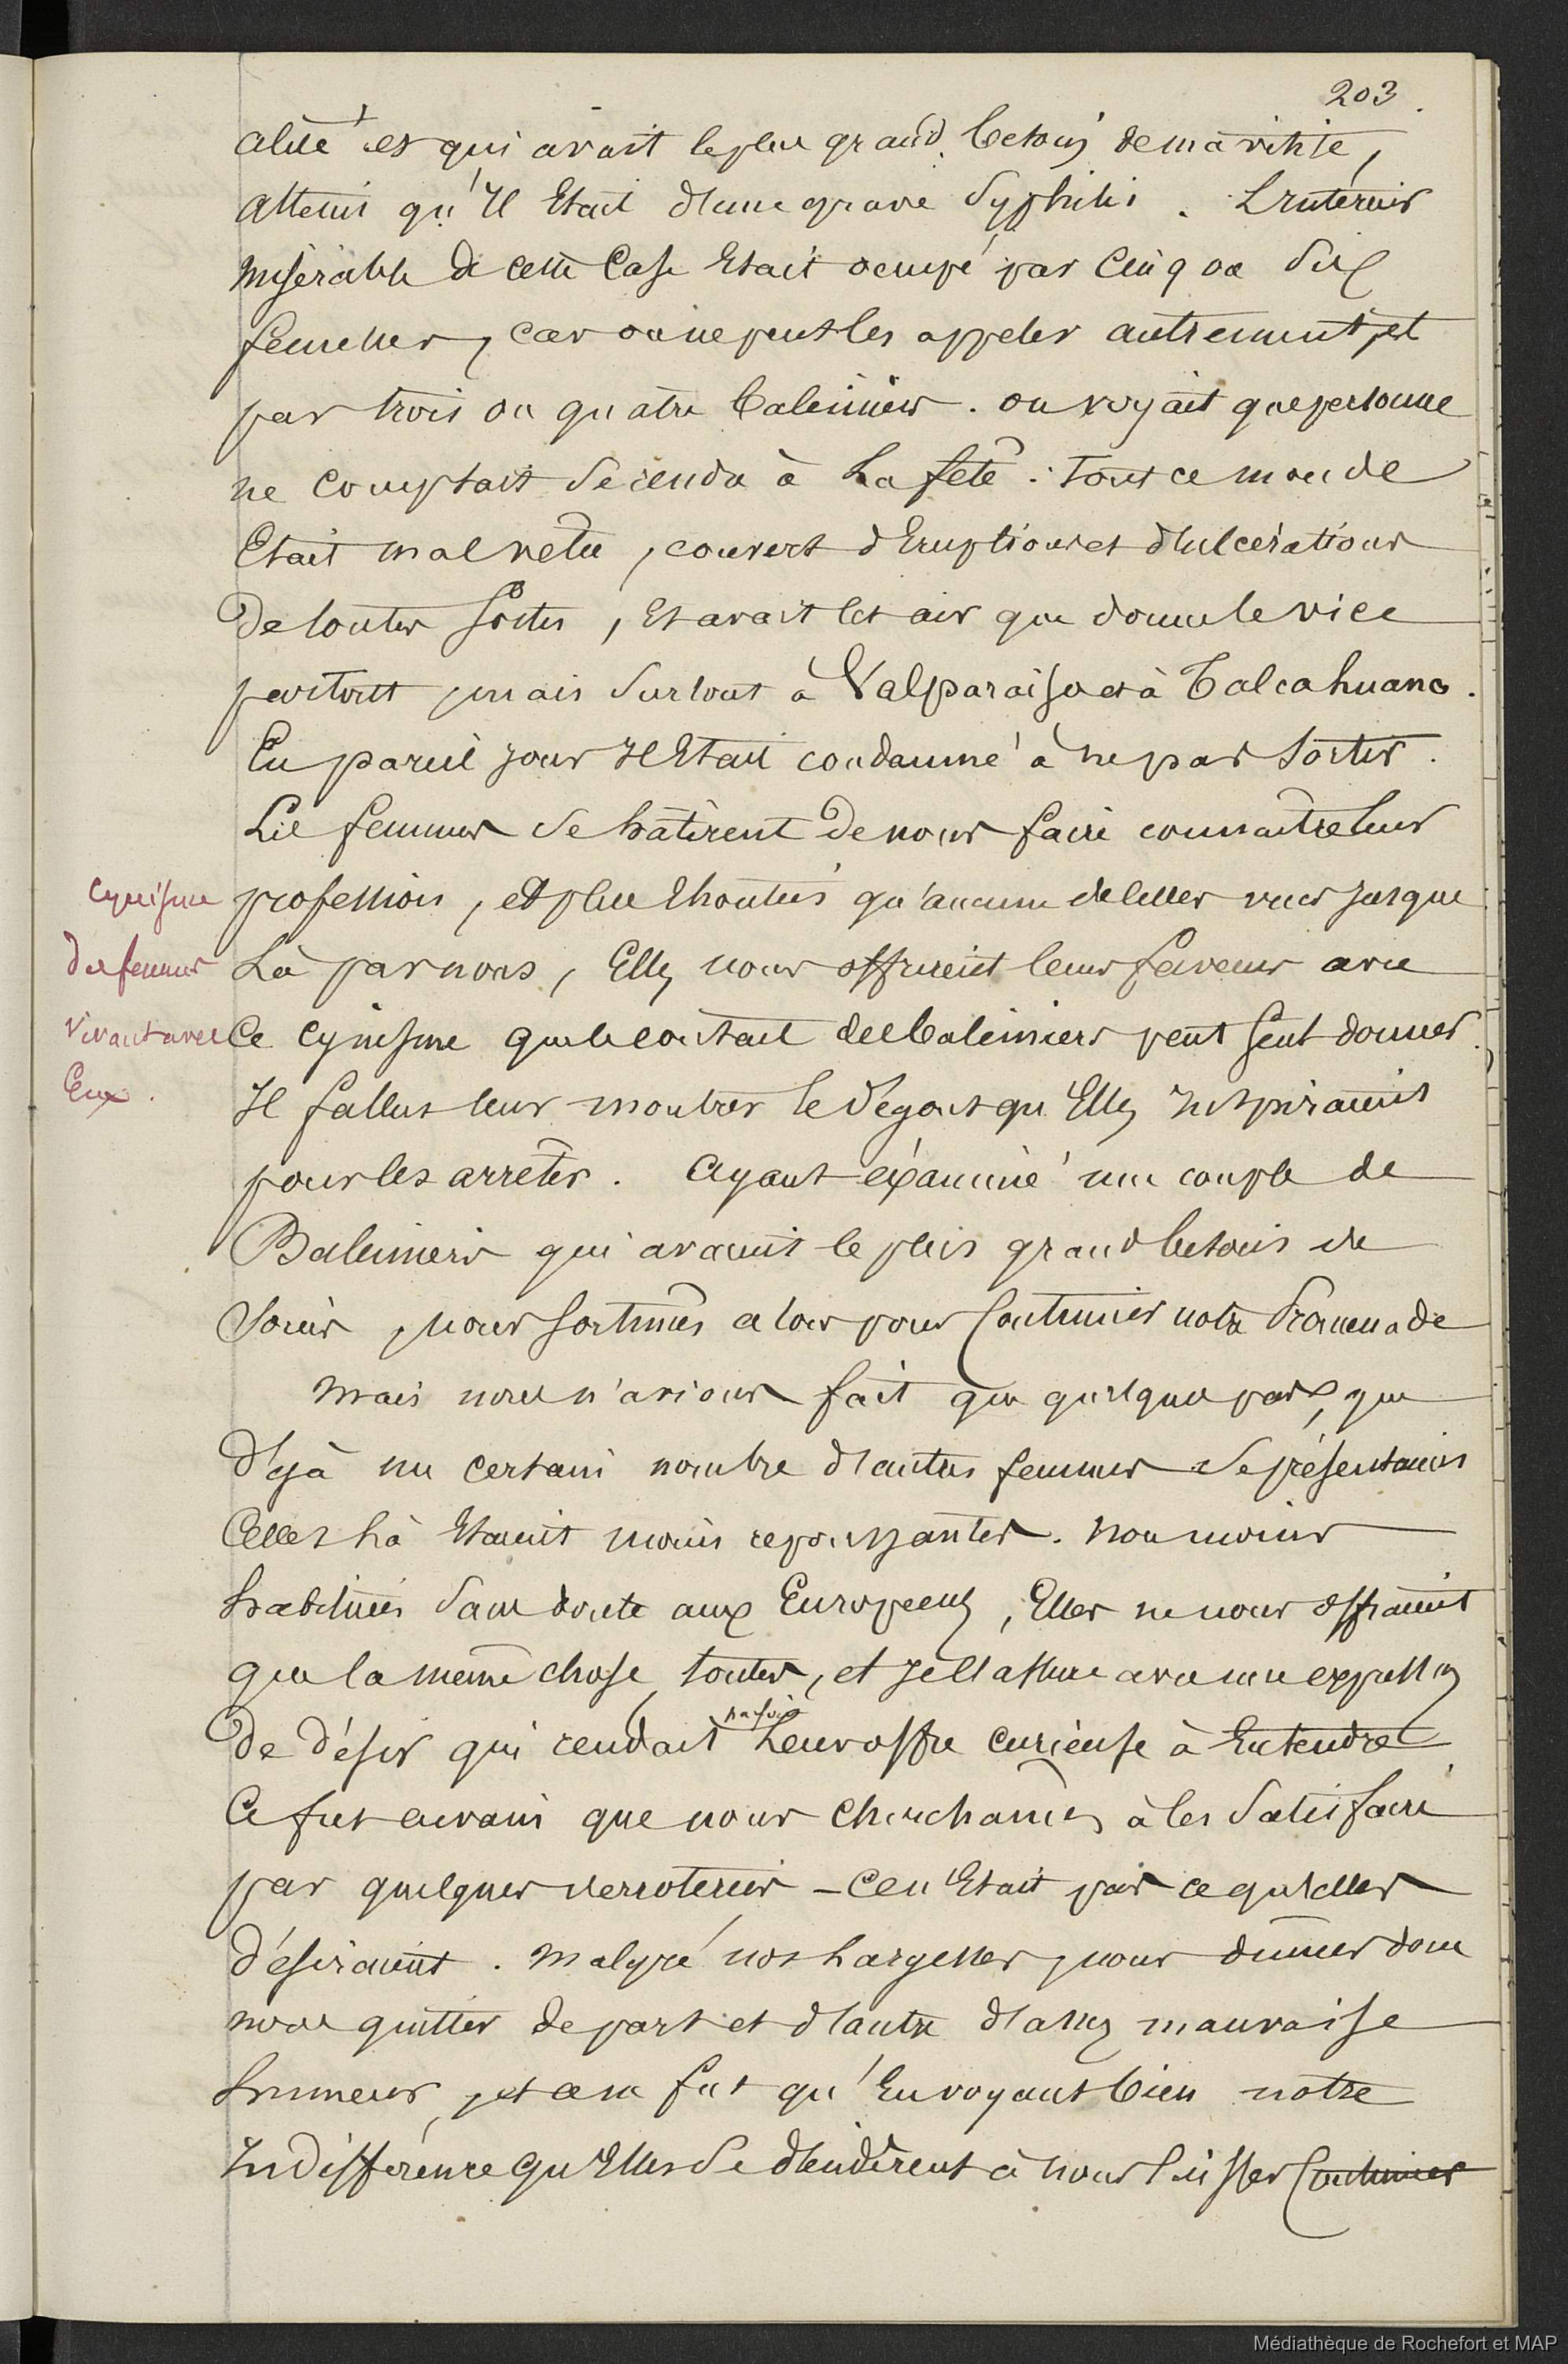 203.
alité et qui avait le plus grand besoin de ma visite,
atteint qu'Il Etait d'une grave Syphilis. L'intérieur
misérable de cette Case Etait occupé par Cinq ou Six
femelles, car on ne peut les appeler autrement, et
par trois ou quatre baleiniers. on voyait que personne
ne comptait se rendre à La fête. Tout ce monde
Etait mal vêtu, couvert d'Eruptions et d'ulcérations
De toutes sortes, Et avait cet air que donne le vice
partout, mais surtout à Valparaiso et à Talcahuano.
En pareil jour Il Etait condamné à ne pas sortir.
Les femmes se hâtèrent De nous faire connaître leur
profession, et plus Ehontées qu'aucune de celles vues jusque
Là par nous, Elles nous offrirent leurs faveurs avec
Ce Cynisme que le contact des baleiniers peut seul donner.
Il fallut leur montrer le dégout qu'Elles Inspiraient
pour les arrêter. Ayant éxaminé une couple de
Baleiniers qui avaient le plus grand besoin de
Soins, nous sortimes alors pour Continuer notre Promenade
Mais nous n'avions fait que quelques pas, que
Déjà un certain nombre d'autres femmes se présentaient
Celles Là Etaient moins repoussantes. Non moins
habituées Sans doute aux Européens, Elles ne nous offraient
que la même chose toutes, et Je l'assure avec une expression
De désir qui rendait Leur offre curieuse à Entendre
Ce fut envain que nous cherchâmes à les Satisfaire
par quelques verroteries – Ce n'Etait pas ce qu'elles
désiraient. Malgré nos Largesses, nous dûmes donc
nous quitter de part et d'autre d'assez mauvaise
humeur, et ce ne fut qu'En voyant bien notre
Indifférence qu'Elles se décidèrent à nous laisser Continuer
Cynisme
Des femmes
Vivant avec
Eux.
Médiathèque de Rochefort et MAP